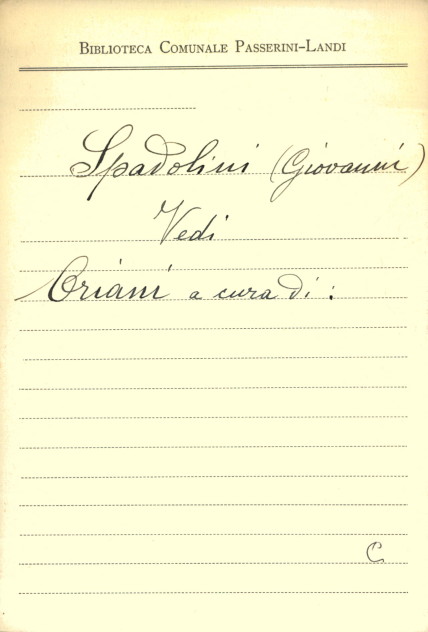 Biblioteca Comunale Passerini-Landi
Spadolini (Giovanni)
Vedi
Oriani a cura di :
C